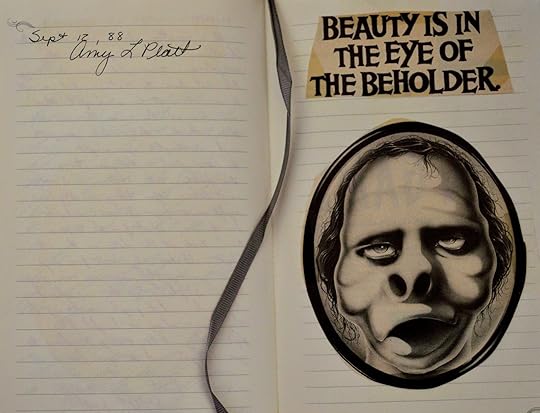 Sept 12, 88
Amy L Platt
BEAUTY IS IN
THE EYE OF
THE BEHOLDER.